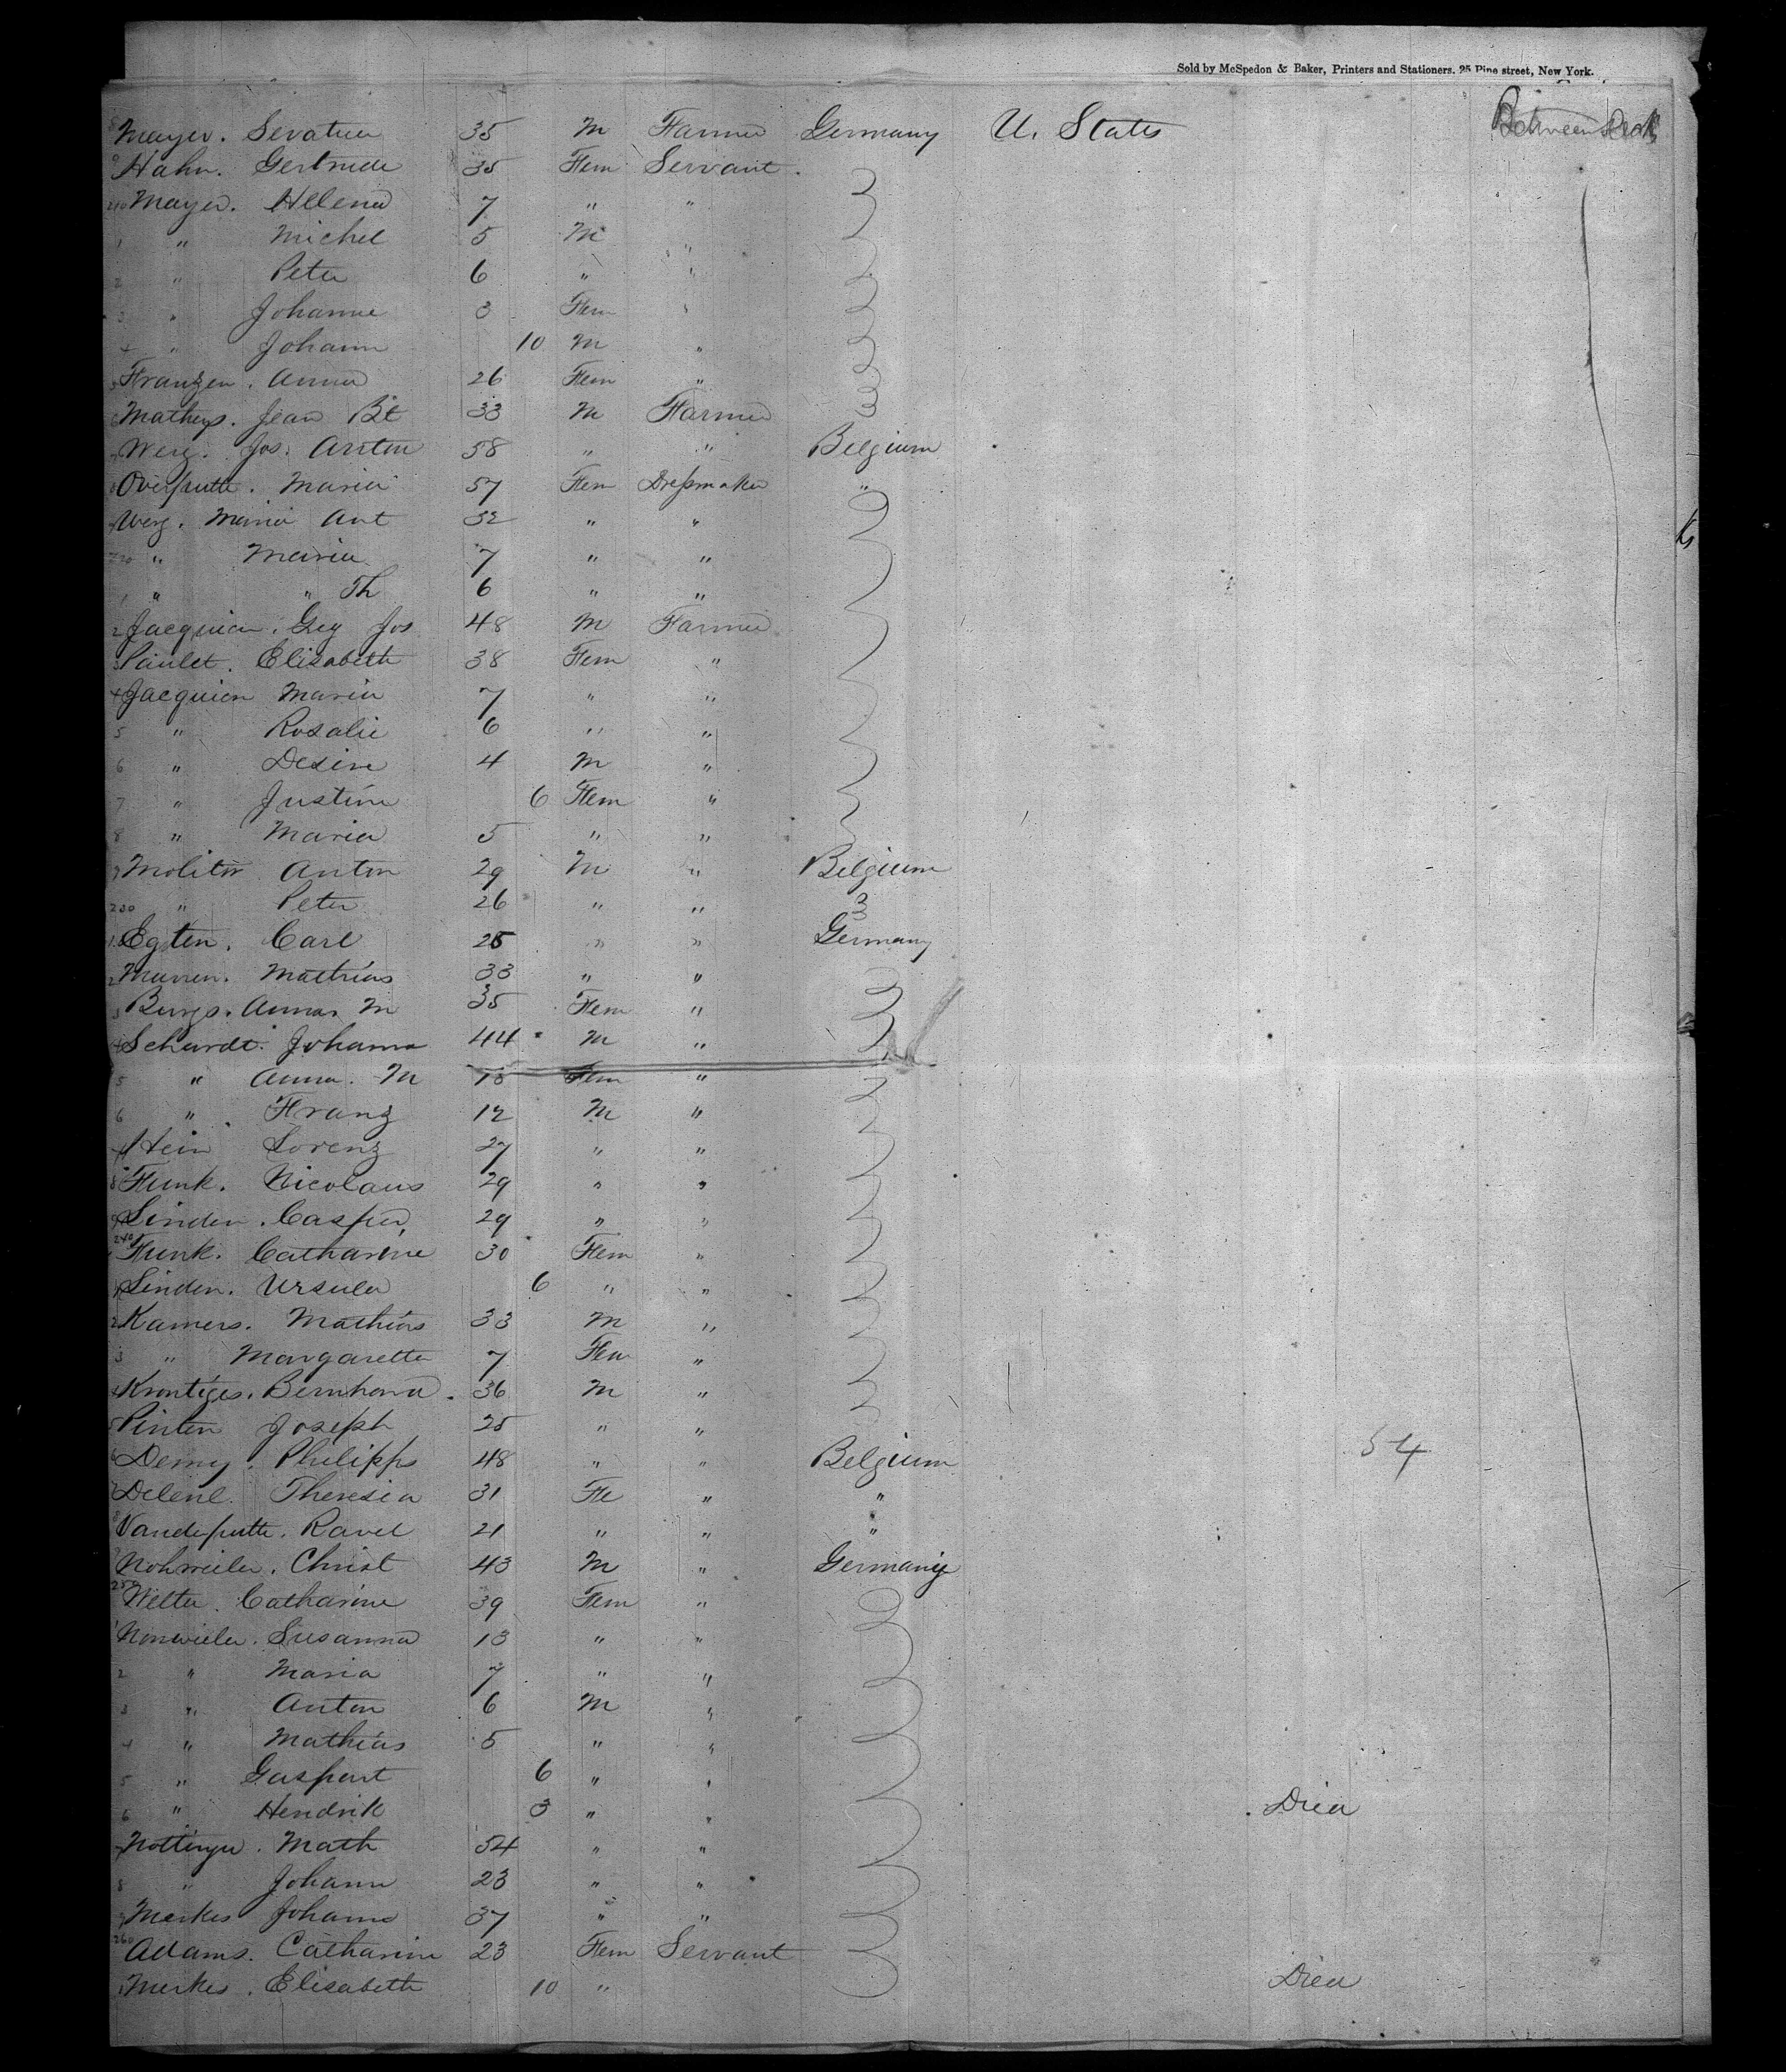 Sold by McSpedon & Baker, Printers and Stationers. 25 Pine street, New York.
Mayer. 35 M Farmer Germany U. States Between Deck
9 Hahn. Gertrude 35 Fem Servant.
210 Mayer. Helena 7 " "
1 " Michel 5 M "
2 " Peter 6 " "
3 " Johanne 3 Fem "
4 " Johann 10 M "
5 Franzen. Anna 26 Fem "
6 Matheys. Jean Bt 33 M Farmer
7 Werg. Jos. Anton 58 " " Belgium
8 Overputte. Maria 57 Fem Dressmaker "
9 Werg. Maria Ant 32 " "
220 " Maria 7 " "
1 " " Th 6 " "
2 Jacquien. Greg Jos 48 M Farmer
3 Paulet. Elisabeth 38 Fem "
4 Jacquien Maria 7 " "
5 " Rosalie 6 " "
6 " Desire 4 M "
7 " Justine 6 Fem "
8 " Maria 5 " "
9 Molitor Anton 29 M " Belgium
230 " Peter 26 " "
1 Egten. Carl 25 " " Germany
2 Mathias 33 " "
3 Burgs. Anna. M 35 Fem "
4 Schardt. Johann 44 M "
5 " Anna. M 18 Fem "
6 " Franz 12 M "
7 Stein Lorenz 27 " "
8 Funk. Nicolaus 29 " "
9 Linden. Casper 29 " "
240 Funk. Catharine 30 Fem "
1 Linden. Ursula 6 " "
2 Kamers. Mathias 33 M "
3 " Margaretta 7 Fem "
4 Krontges. Bernhard. 36 M "
5 Pinten Joseph 25 " "
6 Demy. Philipps 48 " " Belgium 54
7 Theresia 31 Fe " "
8 Vandeputte. Ravel 21 " " "
9 Nohweiler. Christ 43 M " Germany
250 Welter. Catharine 39 Fem "
1 Nonweiler. Susanna 13 " "
2 " Maria 7 " "
3 " Anton 6 M "
4 " Mathias 5 " "
5 " Gaspart 6 " "
6 " Hendrik 3 " " Died
7 Nottinger. Math 54 " "
8 " Johann 23 " "
9 Merkes Johann 37 " "
260 Adams. Catharine 23 Fem Servant
1 Merkes. Elisabeth 10 " Died